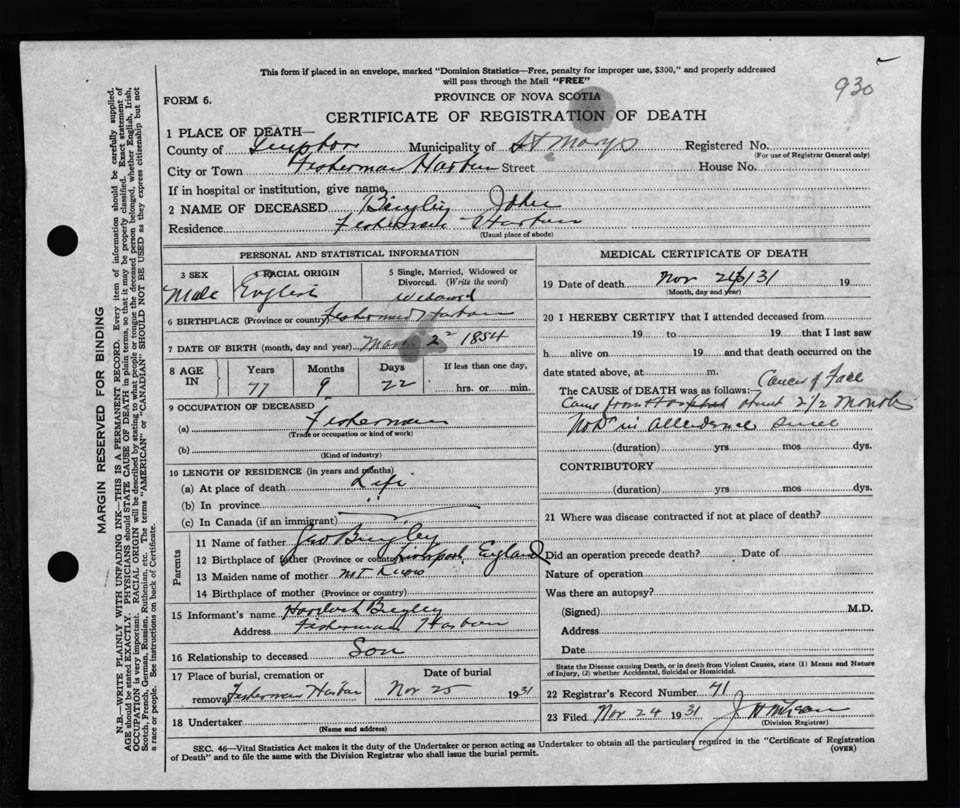 930
This form if placed in an envelope, marked "Dominion Statistics—Free, penalty for improper use, $300," and properly addressed
will pass through the Mail "FREE"
FORM 6.
PROVINCE OF NOVA SCOTIA
CERTIFICATE OF REGISTRATION OF DEATH
1 PLACE OF DEATH—
County of Municipality of St Marys Registered No.
(For use of Registrar General only)
City or Town Fisherman Harbour Street House No.
If in hospital or institution, give name
2 NAME OF DECEASED Bingley John
Residence Fisherman Harbour
(Usual place of abode)
PERSONAL AND STATISTICAL INFORMATION
3 SEX 4 RACIAL ORIGIN 5 Single, Married, Widowed or Divorced. (Write the word)
Male English
6 BIRTHPLACE (Province or country) Fisherman Harbour
7 DATE OF BIRTH (month, day and year) 2 1854
8 AGE IN Years Months Days If less than one day,
77 9 22 hrs. or min.
9 OCCUPATION OF DECEASED
(a) Fisherman
(Trade or occupation or kind of work)
(b)
(Kind of industry)
10 LENGTH OF RESIDENCE (in years and months)
(a) At place of death Life
(b) In province "
(c) In Canada (if an immigrant)
Parents
11 Name of father Bingley
12 Birthplace of father (Province or country) England
13 Maiden name of mother not know
14 Birthplace of mother (Province or country)
15 Informant's name Bingley
Address Fisherman Harbour
16 Relationship to deceased Son
17 Place of burial, cremation or removal Fisherman Harbour
Date of burial Nov 25 1931
18 Undertaker
(Name and address)
MEDICAL CERTIFICATE OF DEATH
19 Date of death Nov 31 19
(Month, day and year)
20 I HEREBY CERTIFY that I attended deceased from
19 to 19 that I last saw
h alive on 19 and that death occurred on the
date stated above, at m.
The CAUSE of DEATH was as follows: Cancer of Face
Came from Hospital about 2 1/2 months
No Dr in attendance since
(duration) yrs mos dys.
CONTRIBUTORY
(duration) yrs mos dys.
21 Where was disease contracted if not at place of death?
Did an operation precede death? Date of
Nature of operation
Was there an autopsy?
(Signed) M.D.
Address
Date
State the Disease causing Death, or in death from Violent Causes, state (1) Means and Nature
of Injury, (2) whether Accidental, Suicidal or Homicidal.
22 Registrar's Record Number 41
23 Filed Nov 24 1931
(Division Registrar)
SEC. 46—Vital Statistics Act makes it the duty of the Undertaker or person acting as Undertaker to obtain all the particulars required in the "Certificate of Registration
of Death" and to file the same with the Division Registrar who shall issue the burial permit. (OVER)
MARGIN RESERVED FOR BINDING
N.B.—WRITE PLAINLY WITH UNFADING INK—THIS IS A PERMANENT RECORD. Every item of information should be carefully supplied.
AGE should be stated EXACTLY. PHYSICIANS should STATE CAUSE OF DEATH in plain terms, so that it may be properly classified. Exact statement of
OCCUPATION is very important. RACIAL ORIGIN will be described by stating to what people or tongue the deceased person belonged, whether English, Irish,
Scotch, French, German, Russian, Ruthenian, etc. The terms "AMERICAN" or "CANADIAN" SHOULD NOT BE USED as they express citizenship but not
a race or people. See instructions on back of Certificate.